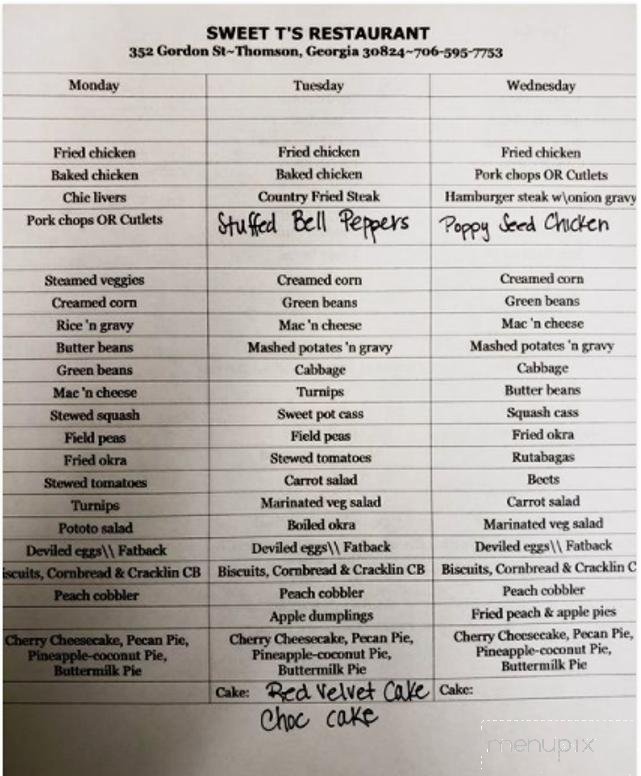 SWEET T'S RESTAURANT
352 Gordon St~Thomson, Georgia 30824~706-595-7753
Monday Tuesday Wednesday
Fried chicken Fried chicken Fried chicken
Baked chicken Baked chicken Pork chops OR Cutlets
Chic livers Country Fried Steak Hamburger steak w\onion gravy
Pork chops OR Cutlets Stuffed Bell Peppers Poppy Seed Chicken
Steamed veggies Creamed corn Creamed corn
Creamed corn Green beans Green beans
Rice 'n gravy Mac 'n cheese Mac 'n cheese
Butter beans Mashed potates 'n gravy Mashed potates 'n gravy
Green beans Cabbage Cabbage
Mac 'n cheese Turnips Butter beans
Stewed squash Sweet pot cass Squash cass
Field peas Field peas Fried okra
Fried okra Stewed tomatoes Rutabagas
Stewed tomatoes Carrot salad Beets
Turnips Marinated veg salad Carrot salad
Pototo salad Boiled okra Marinated veg salad
Deviled eggs\\ Fatback Deviled eggs\\ Fatback Deviled eggs\\ Fatback
iscuits, Cornbread & Cracklin CB Biscuits, Cornbread & Cracklin CB Biscuits, Cornbread & Cracklin C
Peach cobbler Peach cobbler Peach cobbler
Apple dumplings Fried peach & apple pies
Cherry Cheesecake, Pecan Pie, Cherry Cheesecake, Pecan Pie, Cherry Cheesecake, Pecan Pie,
Pineapple-coconut Pie, Pineapple-coconut Pie, Pineapple-coconut Pie,
Buttermilk Pie Buttermilk Pie Buttermilk Pie
Cake: Red Velvet Cake Cake:
Choc cake
menupix